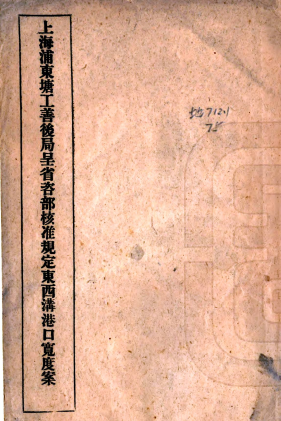 上海浦東塘工善後局呈省咨部核准規定東西溝港口寬度案
地7121
78